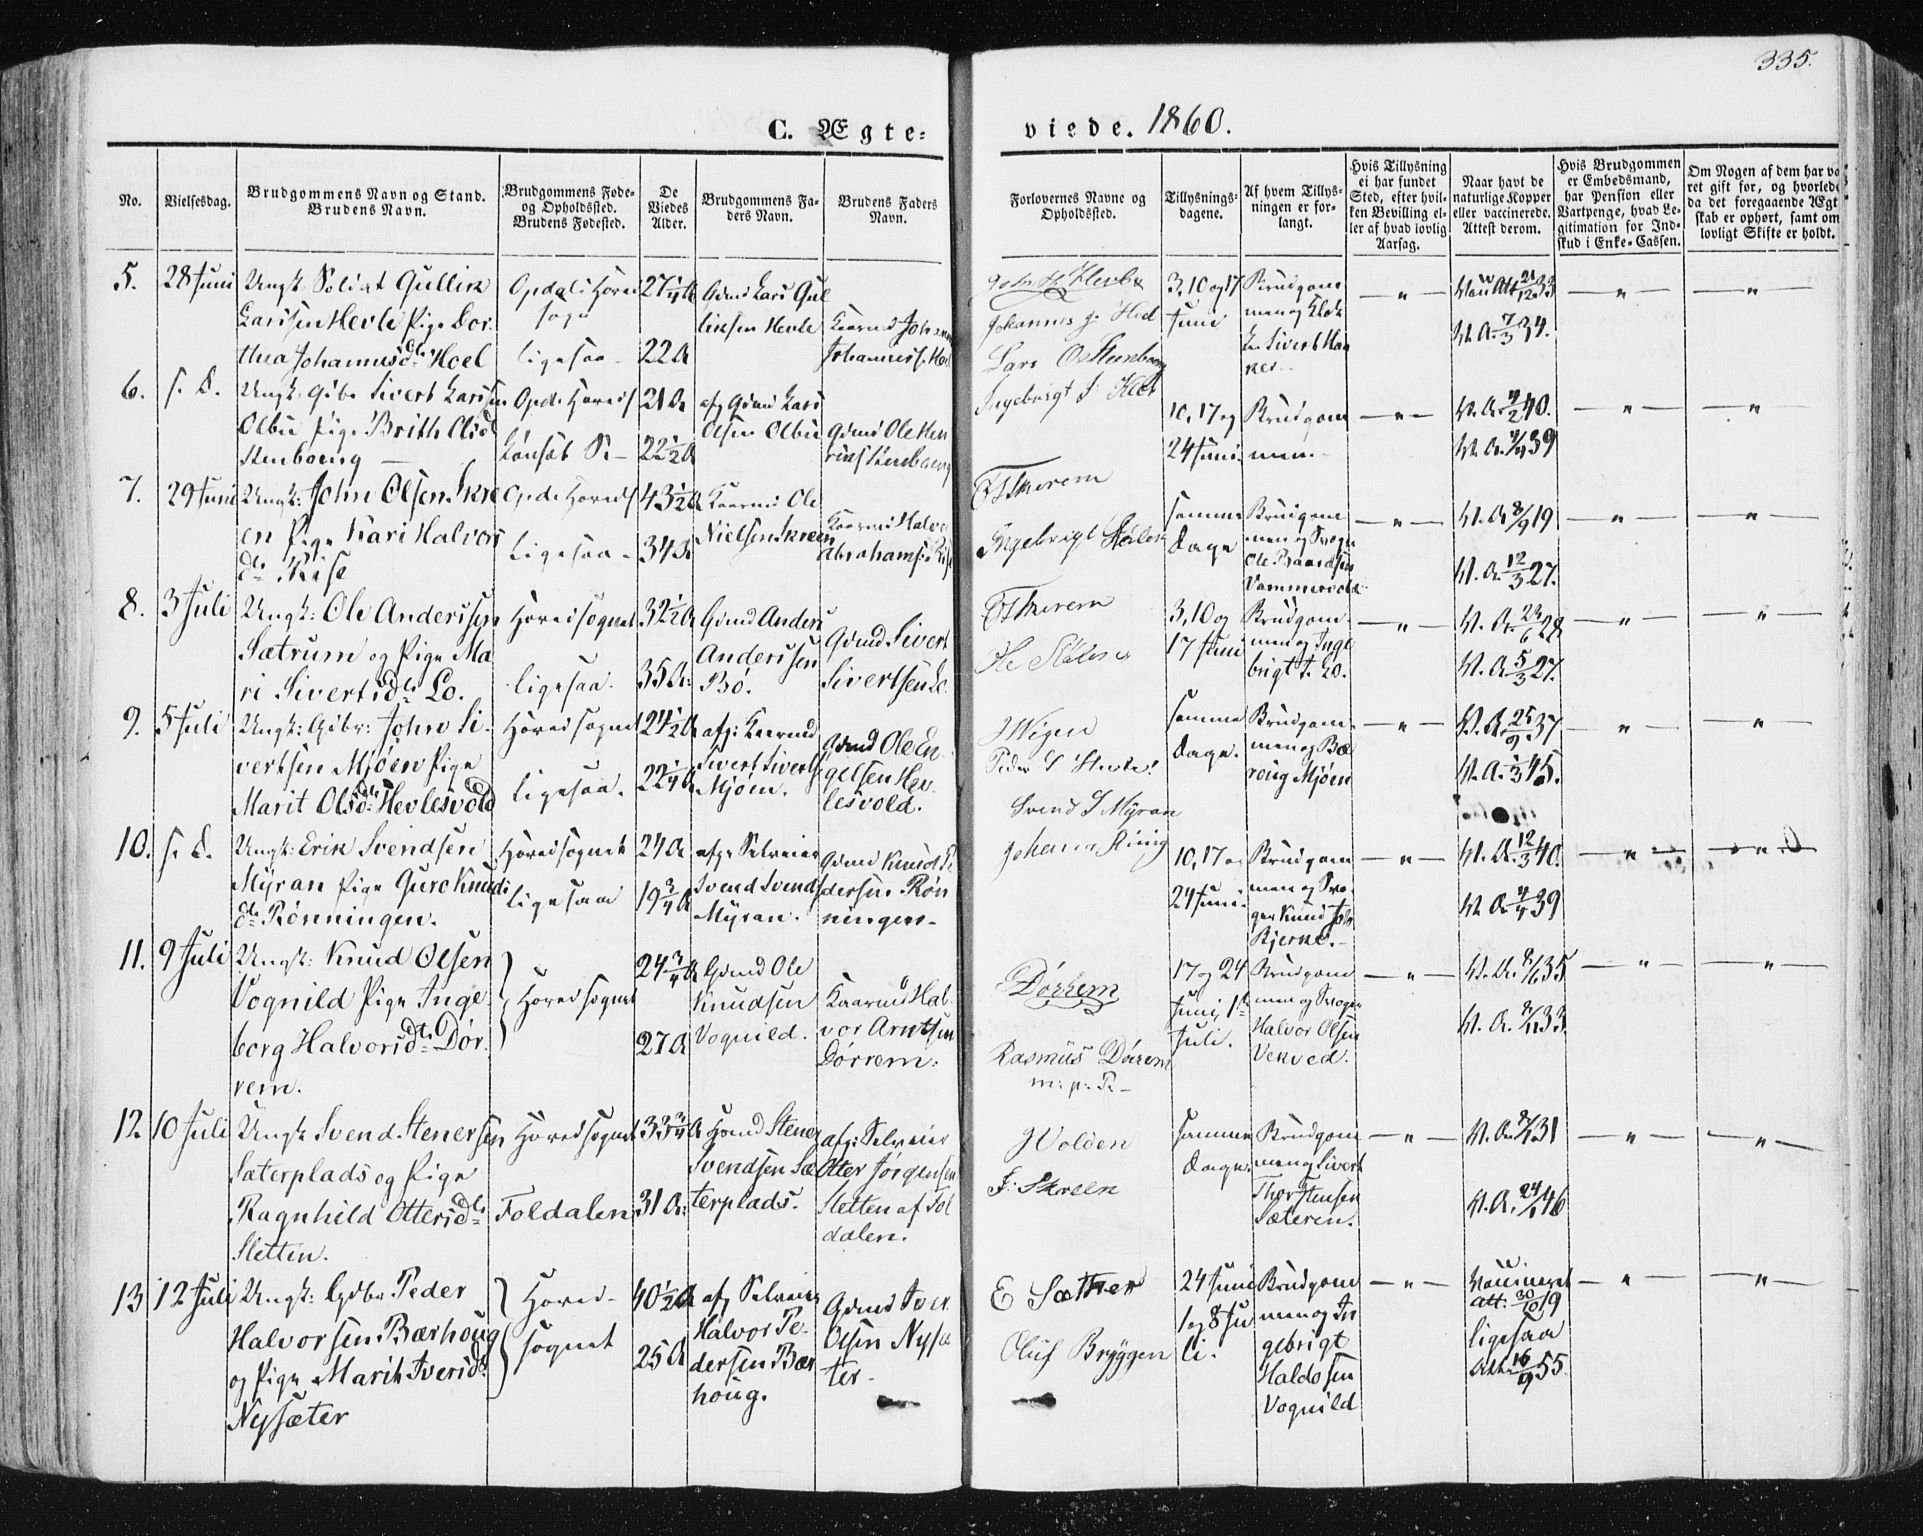 335.
C. Ægte-
viede. 1860.
No.
Vielsesdag.
Brudgommens Navn og Stand.
Brudens Navn.
Brudgommens Føde-
og Opholdssted.
Brudens Fødested.
De
Viedes
Alder.
Brudgommens Fa-
ders Navn.
Brudens Faders
Navn.
Forlovernes Navne og
Opholdssted.
Tillysnings-
dagene.
Af hvem Tillys-
ningen er for-
langt.
Hvis Tillysning
ei har fundet
Sted, efter hvil-
ken Bevilling el-
ler af hvad lovlig
Aarsag.
Naar havt de
naturlige Kopper
eller vaccinerede.
Attest derom.
Hvis Brudgommen
er Embedsmand,
har Pension eller
Vartpenge, hvad Le-
gitimation for Ind-
skud i Enke-Cassen.
Om Nogen af dem har væ
ret gift før, og hvorlede
da det foregaaende Ægt
skab er ophørt, samt om
lovligt Skifte er holdt.
5.
28 Juni
Ungk. Soldat Gullik
Larssen Hevle Pige Dor-
thea Johannesdtr Hoel
Opdals Hoved
sogn
ligesaa
27 1/4 A
22 A
Gdmd Lars Gul
liksen Hevle
Kaarmd
Johanness. Hoel
Johannes J. Hoel
3, 10 og 17
Juni
Brudgom
men og Klok
ker Sivert Haa
ker
V. A. 7/3 34.
6.
s. D.
Ungk. Gdbr. Sivert Larssen
Olbu Pige Brith Olsd
Stenboeng
Opd. Hoveds
Lønset S.
21 A
22 1/2 A
afg Gdmd Lars
Olsen Olbu
Gdmd Ole Hen
riks Stenboeng
Lars O. Stenboeng
10, 17 og
24 Juni.
Brudgom
men.
V. A. 4/2 40.
V. A. 4/4 39
7.
29 Juni
Ungk: John Olsen Skre
en Pige Kari Halvors
dtr Rise
Opd. Hoveds
ligesaa
43 1/2 A
34 A
Kaarmd Ole
Nielsen Skreen
Kaarmd Halvor
Abrahams. Rise
Ingebrigt Stølen
samme
Dage
Brudgom
men og Svoger
Ole Baardsen
Vammervold
V. A. 8/9 19
V. A. 12/3 27.
8.
3 Juli
Ungk: Ole Anderssen
Sætrum og Pige Ma
ri Sivertsdtr Lo.
Hovedsognet
ligesaa.
32 1/2 A
35 A.
Gdmd Anders
Anderssen
Bø.
Gdmd Sivert
Sivertsen Lo.
Ole Stølen
3, 10 og
17 Juni
Brudgom-
men og Inge
brigt T. Lo.
V. A. 23/6 28
V. A. 5/3 27.
9.
5 Juli
Ungk: Gdbr: John Si-
vertsen Mjøen Pige
Marit Olsdtr Hevlesvold
Hovedsognet
ligesaa.
24 1/2 A
22 1/4 A
afg: Kaarmd
Sivert Siverts
Mjøen.
Gdmd Ole En-
gelsen Hev-
lesvold.
J Vigen
samme
Dage.
Brudgom-
men og Bæ
roug Mjøen
V. A. 25/9 37
10.
s. D.
Ungk: Erik Svendsen
Myran Pige Guro Knuds
dtr Rønningen.
Hovedsognet
ligesaa
24 A
19 3/4 A
afg. Selveier
Svend Svends
Myran.
Gdmd Knud Pe
dersen Røn
ningen.
Svend S Myran
10, 17 og
24 Juni.
Brudgom
men og Svo-
ger Knud Joh
Bjerke.
V. A. 12/3 40.
V. A. 4/4 39
11.
9 Juli
Ungk: Knud Olsen
Vognild Pige Inge
borg Halvorsdtr Dør-
rem.
Hovedsognet
24 3/4 A
27 A
Gdmd Ole
Knudsen
Vognild.
Kaarmd Hal-
vor Arntsen
Dørrem.
Dørrem
Rasmus Dørrem
m. p. P.
17 og 24
Juni, 1ste
Juli.
Brudgom
men og Svoger
Halvor Olsen
Vekved.
12.
10 Juli
Ungk Svend Stenersen
Sæterplads og Pige
Ragnhild Ottersdtr
Sletten.
Hovedsognet
Foldalen
33 3/4 A
31 A.
Hmd Stener
Svendsen Sæ
terplads.
afg: Selveier
Otter Jørgensen
Sletten af Fol
dalen.
J Volden
samme
Dage.
Brudgom
men og Sivert
Thorstensen
Sæteren.
V. A. 24/1 46
13
12 Juli
Ungk: Gdbr Peder
Halvorsen Bærhoug
og Pige Marit Iversdtr
Nysæter
Hoved-
sognet
40 1/2 A
25 A
afg Selveier
Halvor Pe-
dersen Bær
houg.
Gdmd Iver
Olsen Nysæ
ter.
E Sæther
Oluf Bryggen
24 Juni
1 og 8 Ju
li.
Brudgom
men og In
gebrigt
Haldosen
Vognild
Vaccineret
Att: 30/10 19
ligesaa
Att. 16/9 55.